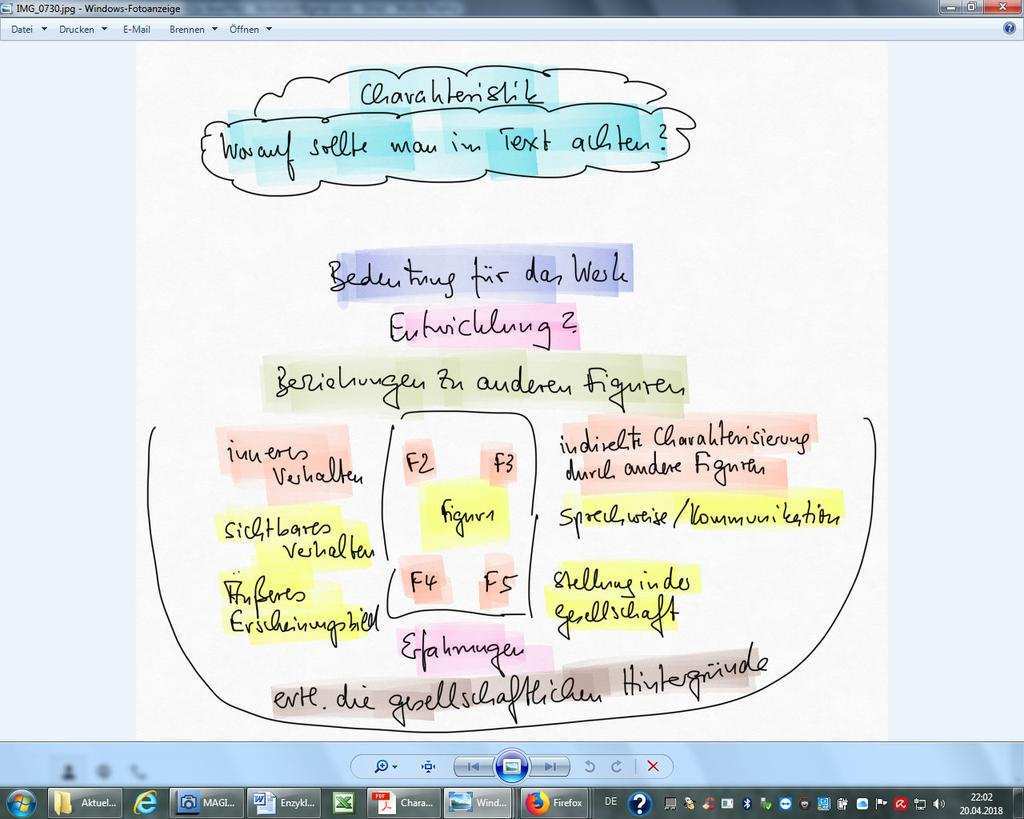 IMG_0730.jpg - Windows-Fotoanzeige
Datei Drucken E-Mail Brennen Öffnen
Charakteristik
Worauf sollte man im Text achten?
Bedeutung für das Werk
Entwicklung?
Beziehungen zu anderen Figuren
inneres
Verhalten
F2 F3
indirekte Charakterisierung
durch andere Figuren
sichtbares
Verhalten
Figur 1
Sprechweise/Kommunikation
Äußeres
Erscheinungsbild
F4 F5
Stellung in der
Gesellschaft
Erfahrungen
evtl. die gesellschaftlichen Hintergründe
Aktuel... MAGI... W Enzykl... PDF Chara... Wind... Firefox DE 22:02
20.04.2018